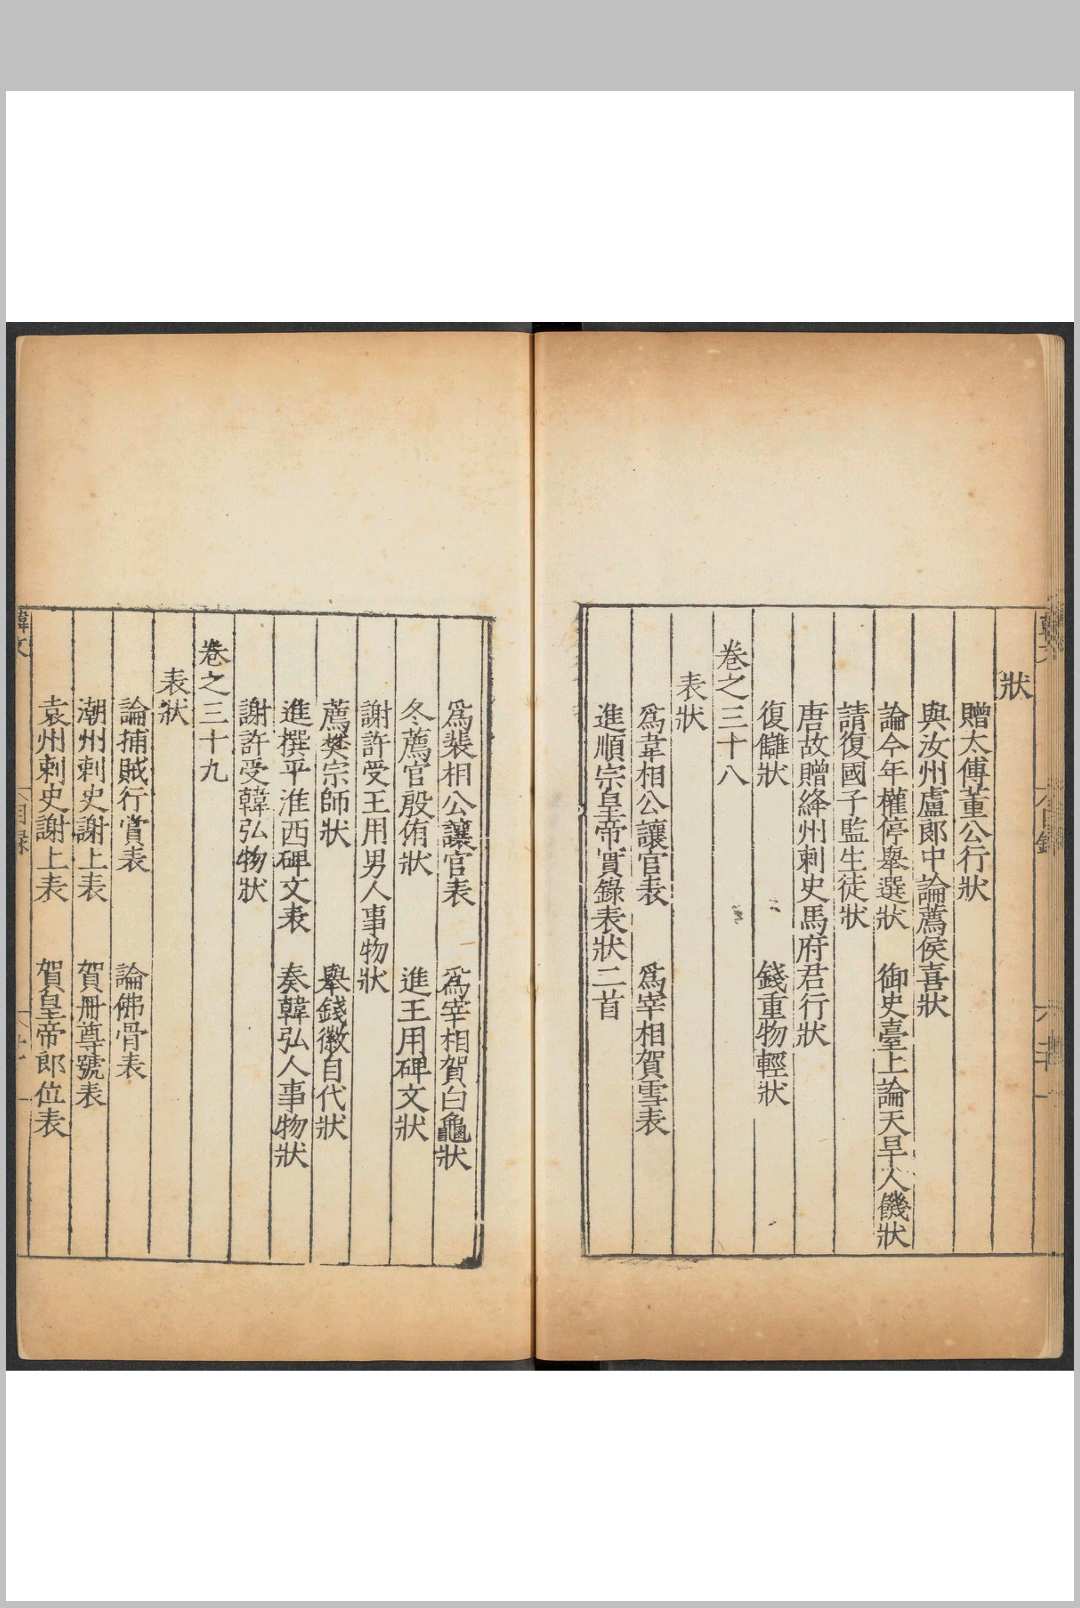 狀
贈太傅董公行狀
與汝州盧郎中論薦侯喜狀
論今年權停舉選狀　御史臺上論天旱人饑狀
請復國子監生徒狀
唐故贈絳州刺史馬府君行狀
復讎狀　錢重物輕狀
卷之三十八
表狀
爲韋相公讓官表　爲宰相賀雪表
進順宗皇帝實錄表狀二首
爲裴相公讓官表　爲宰相賀白龜狀
冬薦官殷侑狀　進王用碑文狀
謝許受王用男人事物狀
薦樊宗師狀　舉錢徽自代狀
進撰平淮西碑文表　奏韓弘人事物狀
謝許受韓弘物狀
卷之三十九
表狀
論捕賊行賞表　論佛骨表
潮州刺史謝上表　賀冊尊號表
袁州刺史謝上表　賀皇帝郎位表
韓文
目錄